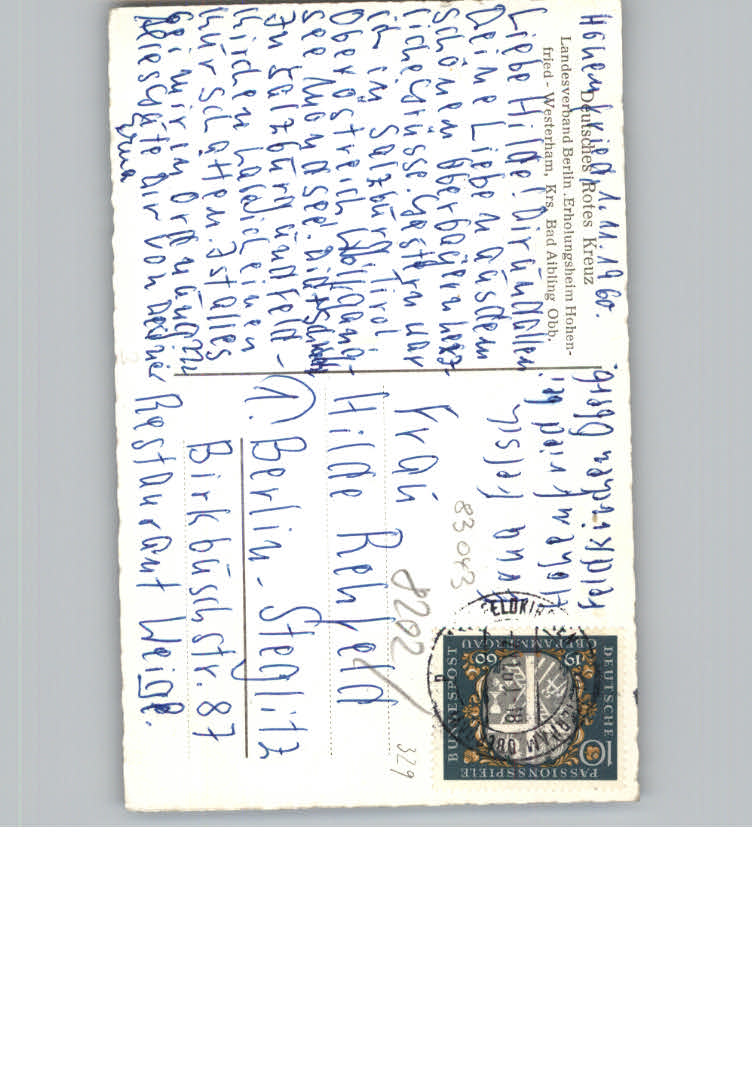 Hohenfried, 1.11.1960.
Deutsches Rotes Kreuz
Landesverband Berlin. Erholungsheim Hohen-
fried - Westerham, Krs. Bad Aibling Obb.
Liebe Hilde! Dir und allen
Deine Lieben aus dem
schönen Oberbayern herz-
liche Grüsse. Gestern war
ich im Salzburg Tirol
Oberostreich Wolfgang-
see Mondsee.
In Salzburg und Feld-
kirchen hab ich einen
Kurschatten. Ist alles
bei mir in Ordnung zu
Erna
Feldkirchen Obb
Hohenfried bei
Frau
Hilde Rehfeld
1. Berlin-Steglitz
Birkbuschstr. 87
Restaurant Weige.
83 043
8202
329
DEUTSCHE
BUNDESPOST
10
PASSIONSSPIELE
OBERAMMERGAU
19 60